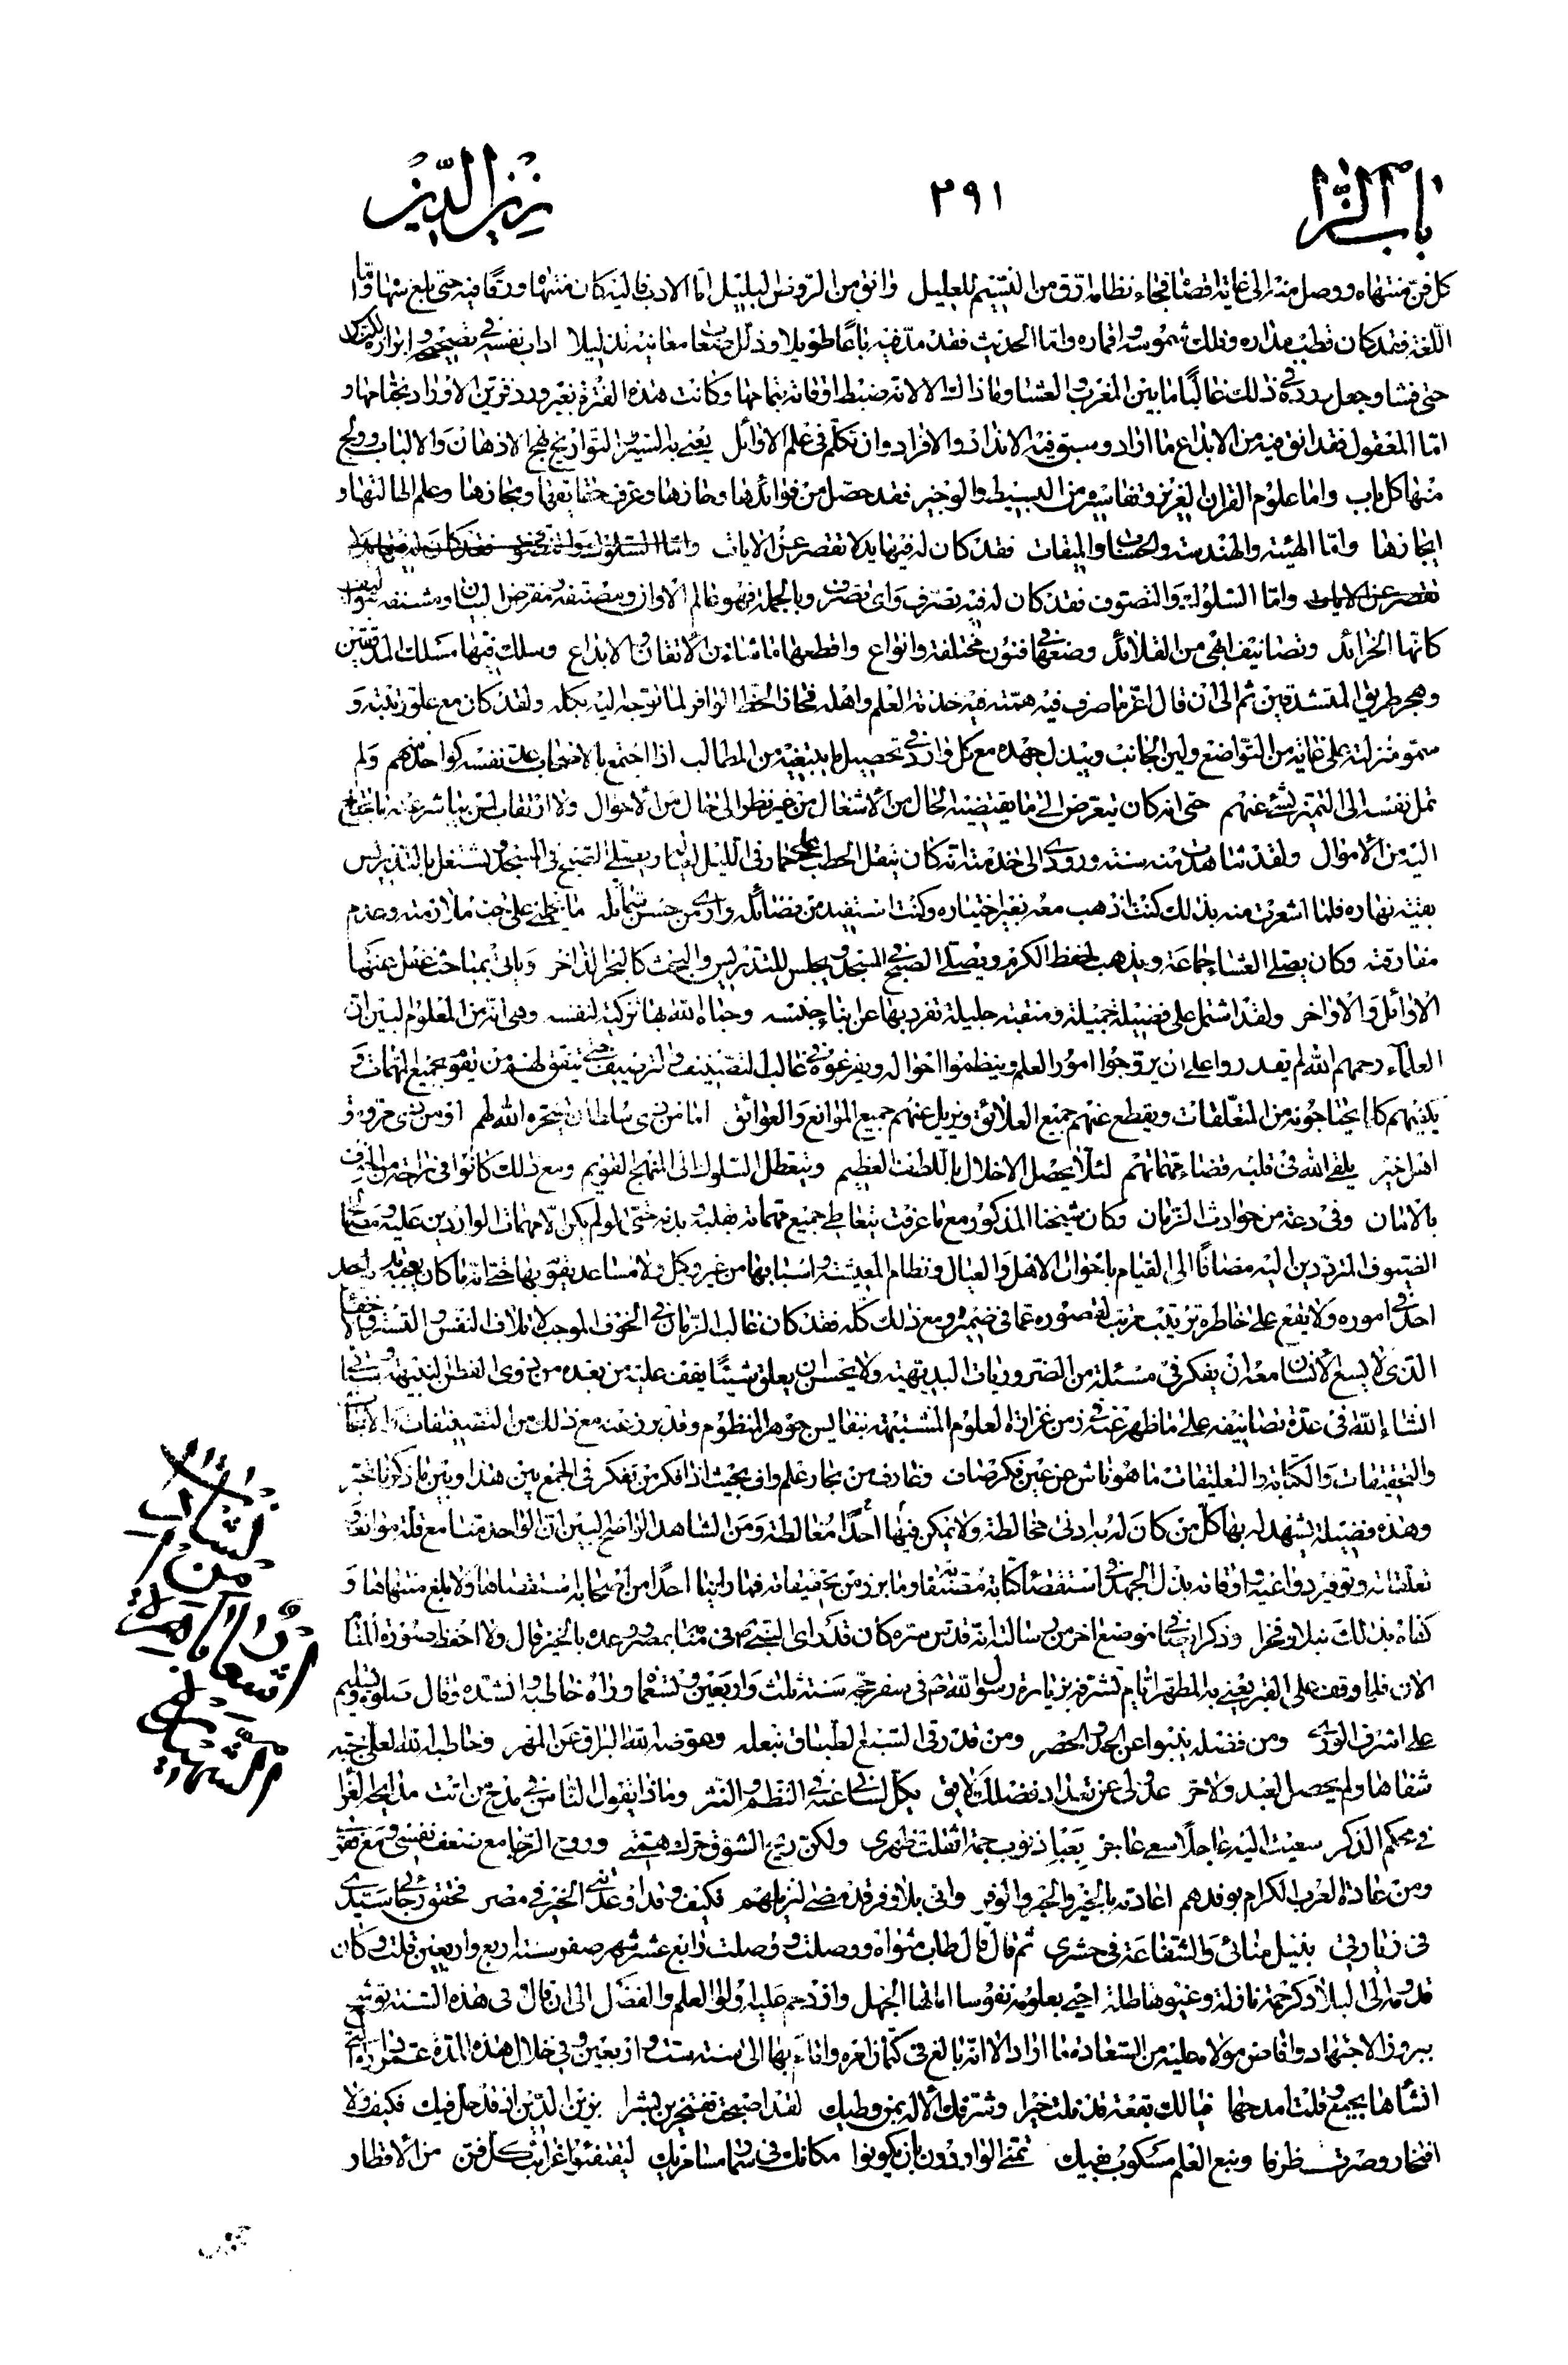 باب الزا
٢٩١
زين الدين
كل فن منتهاه ووصل منه الى غايته اقصاها فجاء نظامه ارق من النسيم للعليل وانق من الروض البليل اما الادب فاليه كان منتهاه ورقا فيه حتى بلغ سهاه واما
اللغة فقد كان قطب مداره وفلك شموسه واقماره واما الحديث فقد مد فيه باعا طويلا وذلل صعاب معانيه تذليلا اداب نفسه في تصحيحه وابرازه للناس
حتى فشا وجعل ورده في ذلك غالبا ما بين المغرب والعشا وما ذاك الا لانه ضبط اوقاته بتمامها وكانت هذه الفترة بغير ورد فزين الاوراد بختامها و
اما المعقول فقد انق فيه من الابداع ما اراد وسبق فيه الانداد والافراد وان تكلم في علم الاوائل يعني به السير والتواريخ بهج الاذهان والالباب وولج
منها كل باب واما علوم القران العزيز وتفاسيره من البسيط والوجيز فقد حصل من فوائدها وحازها وعرف حقايقها ومجازها وعلم اطالتها و
ايجازها واما الهيئة والهندسة والحساب والميقات فقد كان له فيها يد لا تقصر عن الايات
واما السلوك والتصوف فقد كان له فيه تصرف واي تصرف وبالجملة فهو عالم الاوان ومصنفه ومقرض البيان ومشنفه
كانها الخرائد وتصانيف ابهى من القلائد وضعها في فنون مختلفة وانواع واقطعها ما شاء من الاتقان والابداع وسلك فيها مسلك المدققين
وهجر طريق المتشدقين ثم الى ان قال اعز ما صرف فيه همته فيه خدمة العلم واهله فحاز الحظ الوافر لما توجه اليه بكله ولقد كان مع علو رتبته و
سمو منزلته على غاية من التواضع ولين الجانب ويبذل جهده مع كل وارد في تحصيل ما يبتغيه من المطالب اذا اجتمع بالاصحاب عد نفسه كواحد منهم ولم
تمل نفسه الى التميز بشئ عنهم حتى انه كان يتعرض الى ما يقتضيه الحال من الاشغال من غير نظر الى حال من الاحوال ولا ارتقاب لمن يباشر عنه ما يحتاج
اليه من الاموال ولقد شاهدت منه سنة ورودي الى خدمته انه كان ينقل الحطب على حمار في الليل لعياله ويصلي الصبح في المسجد ويشتغل بالتدريس
بقية نهاره فلما اشعرت منه بذلك كنت اذهب معه بغير اختياره وكنت استفيد من فضائله وارى من حسن شمائله ما يحملني على حب ملازمته وعدم
مفارقته وكان يصلي العشاء جماعة ويذهب لحفظ الكرم ويصلي الصبح في المسجد ويجلس للتدريس والبحث كالبحر الزاخر وياتي بمباحث غفل عنها
الاوائل والاواخر ولقد اشتمل على فضيلة جميلة ومنقبة جليلة تفرد بها عن ابناء جنسه وحباه الله بها تزكية لنفسه وهي انه من المعلوم البين ان
العلماء رحمهم الله لم يقدروا على ان يروجوا امور العلم وينظموا احواله ويفرغوه في غالب التصنيف والترصيف حتى يتفق لهم من يقوم بجميع المهمات و
يكفيهم كلما يحتاجونه من المتعلقات ويقطع عنهم جميع العلائق ويزيل عنهم جميع الموانع والعوائق اما من ذي سلطان يسخره الله لهم او من ذي مروة و
اهل خير يلقي الله في قلبه قضاء مهماتهم لئلا يحصل الاخلال باللطف العظيم ويتعطل السلوك الى المنهج القويم ومع ذلك كانوا في راحة من الخوف
بالامان وفي دعة من حوادث الزمان وكان شيخنا المذكور مع ما عرفت يتعاطى جميع مهماته بقلبه وبدنه حتى لو لم يكن الا مهمات الواردين عليه ومصالح
الضيوف المترددين اليه مضافا الى القيام باحوال الاهل والعيال ونظام المعيشة واسبابها من غير وكيل ولا مساعد يقوم بها حتى انه ما كان يعجبه تدبير احد
احد في اموره ولا يقع على خاطره ترتيب مرتب لقصوره عما في ضميره ومع ذلك كله فقد كان غالب الزمان في الخوف الموجب لاتلاف النفس والتستر والاختفاء
الذي لا يسع الانسان معه ان يفكر في مسئلة من الضروريات البديهية ولا يحسن ان يعلق شيئا يقف عليه من بعده من ذوي الفطن النبيهة وسياتي
انشاء الله في عدة تصانيفه على ما ظهر عنه في زمن غزارة العلوم المشبهة بنفايس جوهر المنظوم وقد برز عنه مع ذلك من التصنيفات والابحاث
والتحقيقات والكتابة والتعليقات ما هو ناش عن عين فكر صاف وغارف من بحار علم واف بحيث اذا فكر من تفكر في الجمع بين هذا وبين ما ذكرنا تحير
وهذه فضيلة يشهد له بها كل من كان له به ادنى مخالطة ولا يمكن فيها احدا مغالطة ومن الشاهد الواضح البين ان الواحد منا مع قلة موانعه و
تعلقاته وتوفير دواعيه واوقاته بذل الجهد في استقصاء كتابة مصنفاته وما برز من تحقيقاته فما راينا احدا من اصحابه استقصاها ولا بلغ منتهاها و
كفاه بذلك نبلا وفخرا وذكر ايضا في موضع اخر من رسالته انه قدس سره كان قد راى النبي ص في منامه بمصر ووعده بالخير قال ولا احفظ صورة المنام
الان فلما وقف على القبر يعني به المطهر ايام تشرفه بزيارة رسول الله ص في سفر حجه سنة ثلث واربعين وتسعمائة وزاره خاطبه وانشده وقال صلوة وتسليم
على اشرف الورى ومن فضله ينبوا عن الحد والحصر ومن قد رقى السبع الطباق بنعله وعوضه الله البراق عن المهر وخاطبه الله العلي بحبه
شفاها ولم يحصل لعبد ولا حر عدولي عن تعداد فضلك لايق يكل لساني عنه في النظم والنثر وماذا يقول الناس في مدح من اتت مدائحه الغرا
في محكم الذكر سعيت اليه عاجلا سعي عاجز بعبء ذنوب جمة اثقلت ظهري ولكن ريح الشوق حرك همتي وروح الرجا مع ضعف نفسي ومع فقري
ومن عادة العرب الكرام بوفدهم اعادته بالخير والحبر والوفر وانى بلا وفر قد مضى لنزيلهم فكيف وقد اوعدتني الخير في مصر فحقق رجائي سيدي
في زيارتي بنيل منائي والشفاعة في حشري ثم قال قال طاب مثواه ووصلت رابع عشر شهر صفر سنة اربع واربعين قلت وكان
قدومه الى البلاد كرحمة نازلة وغيوث هاطلة احيى بعلومه نفوسا اماتها الجهل وازدحم عليه اولوا العلم والفضل الى ان قال في هذه السنة توشح
ببرود الاجتهاد وافاض مولاه عليه من السعادة ما اراد الا انه بالغ في كتمان امره واقام بها الى سنة ست واربعين وفي خلال هذه المدة عمر داره التي
انشأها بجبع وقلت امدحها فيا لك بقعة قد نلت خيرا وشرفك الاله بمن وطيك لقد اصبحت تفتخرين بشرا بزين الدين اذ قد حل فيك فكيف ولا
افتخار وصرت ظرفا ونبع العلم مسكوب بفيك تمنى الواردون بان يكونوا مكانك في سما مساحريك ليقتفيوا غرائب كل فن من الاقطار
لشاب
من
اشعار
الشهيد